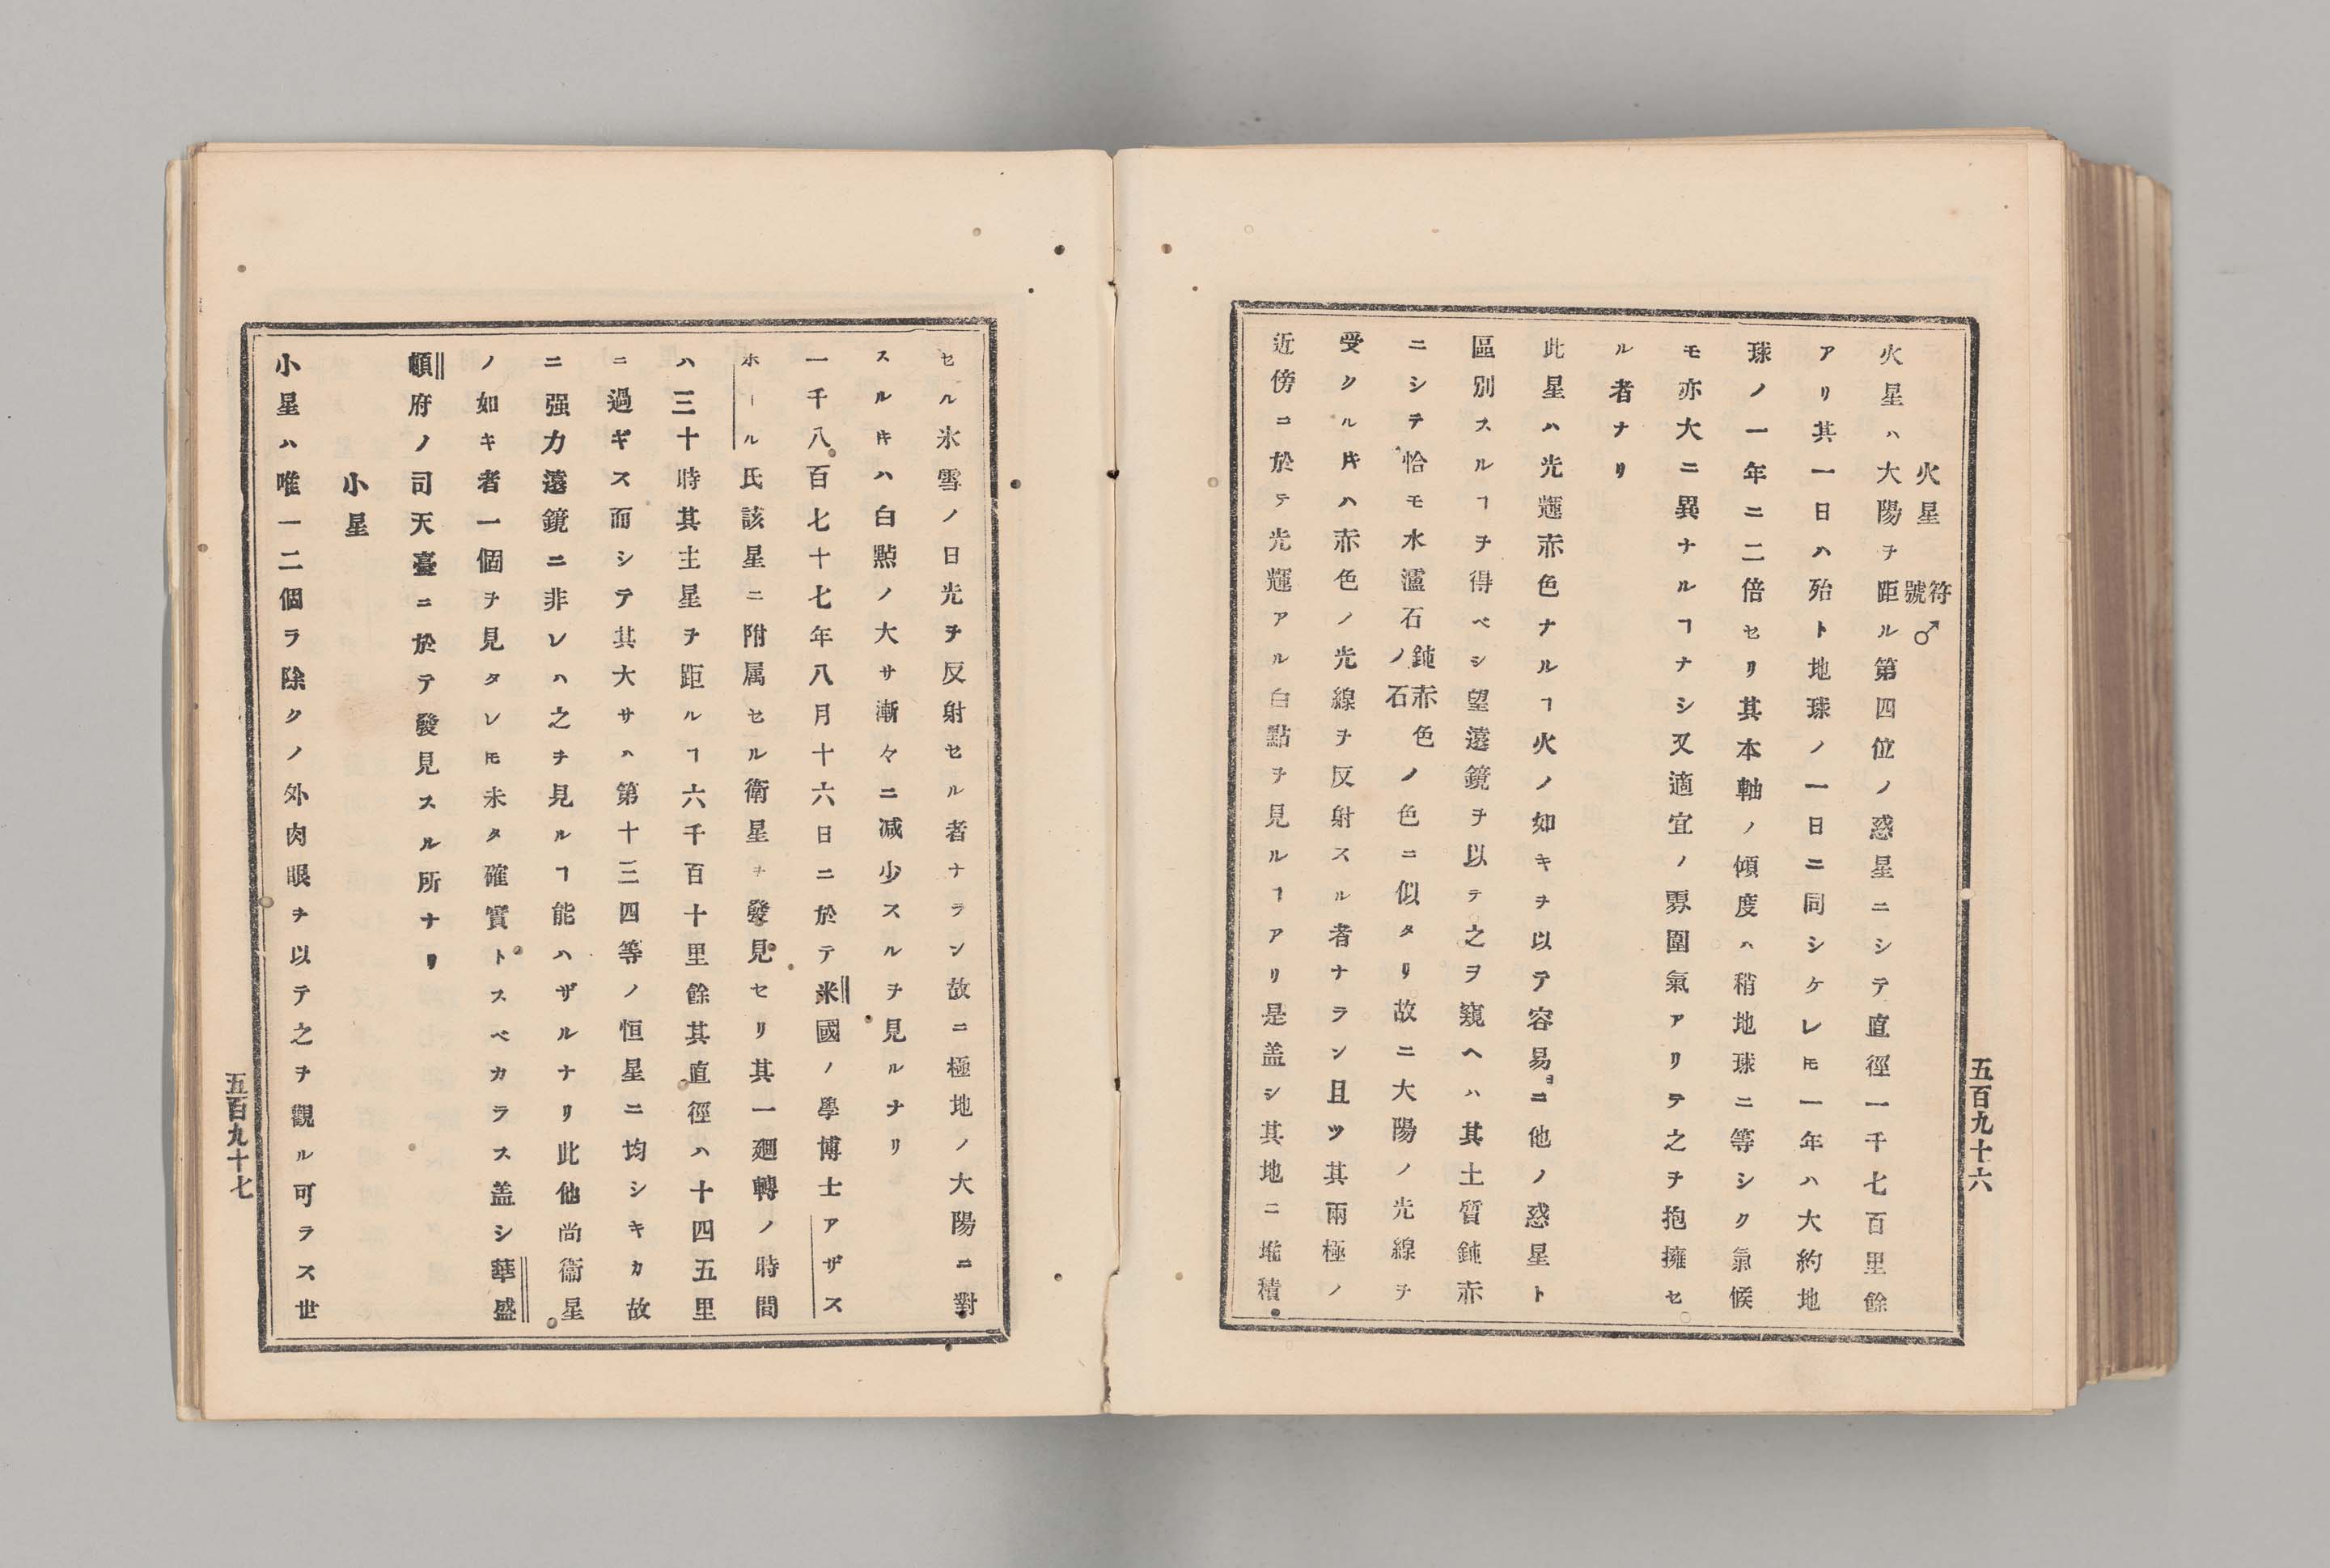 火星 符號♂
火星ハ大陽ヲ距ル第四位ノ惑星ニシテ直徑一千七百里餘
アリ其一日ハ殆ト地球ノ一日ニ同シケレ𪜈一年ハ大約地
球ノ一年ニ二倍セリ其本軸ノ傾度ハ稍地球ニ等シク氣候
モ亦大ニ異ナルヿナシ又適宜ノ雰圍氣アリテ之ヲ抱擁セ
ル者ナリ
此星ハ光輝赤色ナルヿ火ノ如キヲ以テ容易ニ他ノ惑星ト
區別スルヿヲ得ベシ望遠鏡ヲ以テ之ヲ窺ヘハ其土質鈍赤
ニシテ恰モ水瀘石鈍赤色ノ石ノ色ニ似タリ故ニ大陽ノ光線ヲ
受クルキハ赤色ノ光線ヲ反射スル者ナラン且ツ其兩極ノ
近傍ニ於テ光輝アル白點ヲ見ルヿアリ是盖シ其地ニ堆積
五百九十六
セル氷雪ノ日光ヲ反射セル者ナラン故ニ極地ノ大陽ニ對
スルキハ白㸃ノ大サ漸々ニ减少スルヲ見ルナリ
一千八百七十七年八月十六日ニ於テ米國ノ學博士アザス
ホール氏該星ニ附属セル衛星ヲ發見セリ其一廻轉ノ時間
ハ三十時其主星ヲ距ルヿ六千百十里餘其直徑ハ十四五里
ニ過ギス而シテ其大サハ第十三四等ノ恒星ニ均シキカ故
ニ强力遠鏡ニ非レハ之ヲ見ルヿ能ハザルナリ此他尚衞星
ノ如キ者一個ヲ見タレ𪜈未タ確實トスベカラス盖シ華盛
頓府ノ司天臺ニ於テ發見スル所ナリ
小星
小星ハ唯一二個ヲ除クノ外肉眼ヲ以テ之ヲ觀ル可ラス世
五百九十七